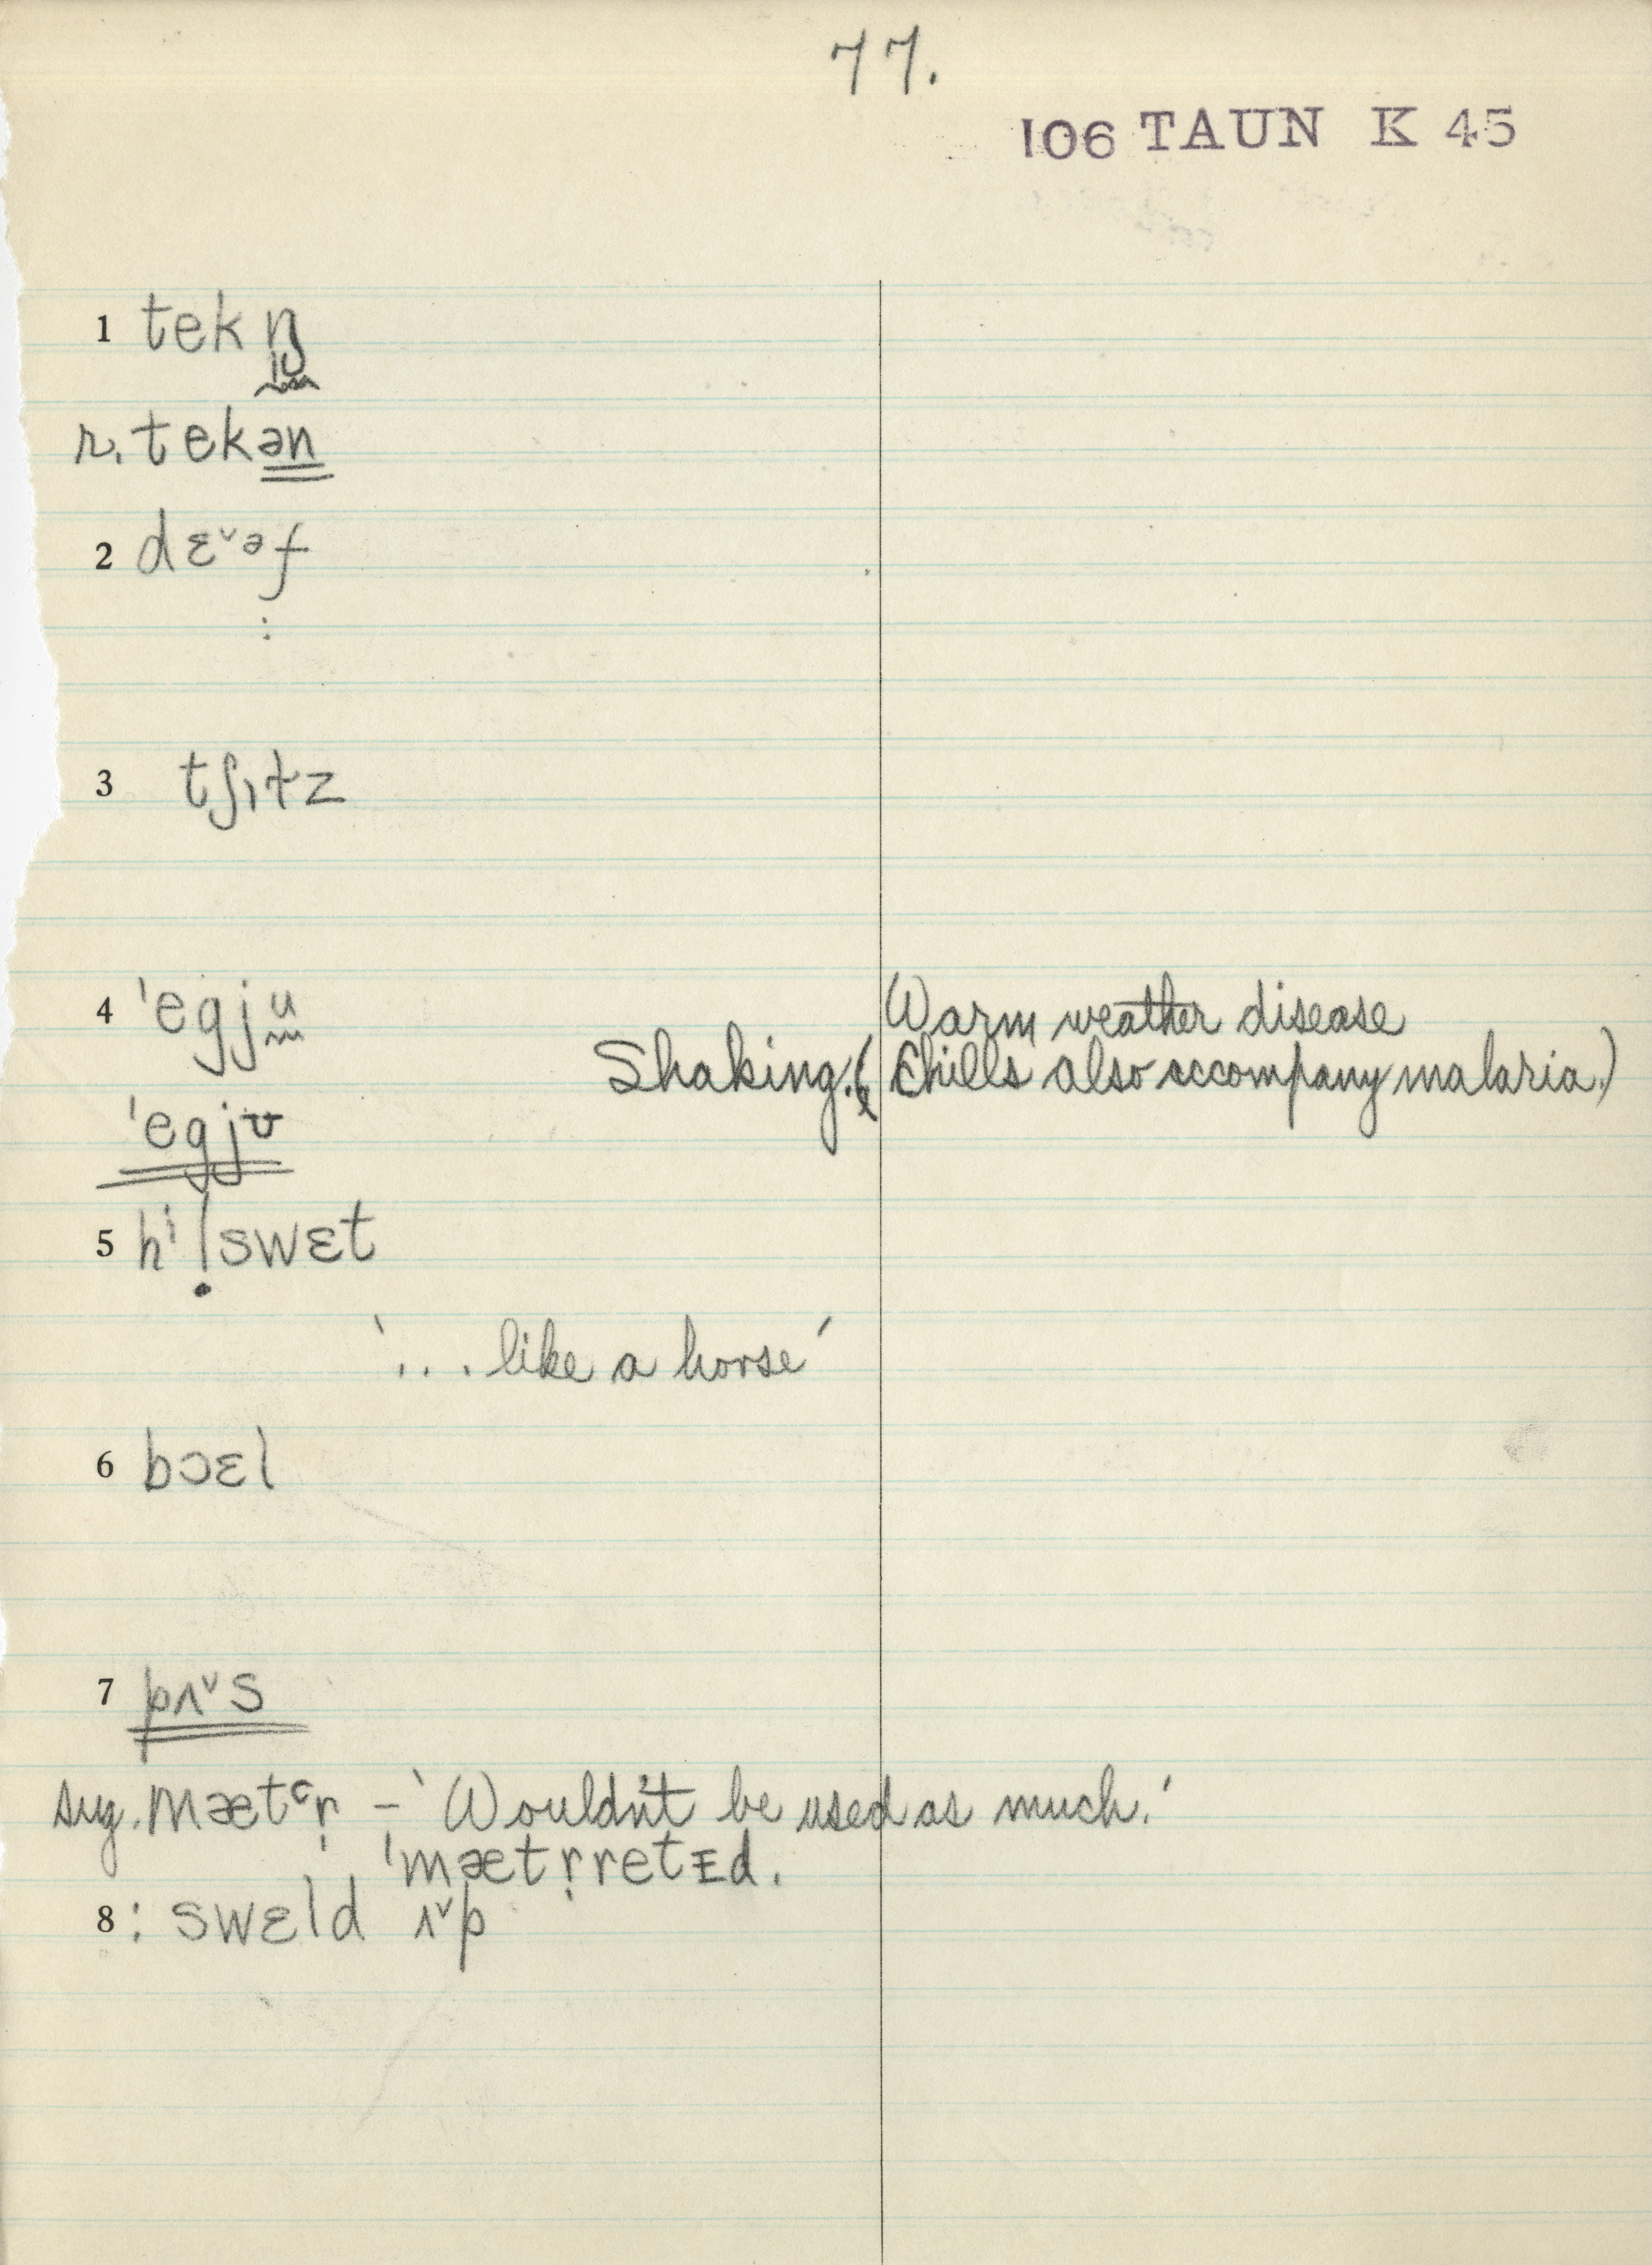 77.
106 TAUN K 45
1 tekŋ̩
r. tekən
2 dɛˇəf
:
3 tʃɪtz
4 ˈegju
Warm weather disease
Shaking. (Chills also accompany malaria.)
ˈegjʊ
5 hⁱ|swɛt
'... like a horse'
6 bɔɛl
7 pʌˇs
sug. mætər̩ – 'Wouldn't be used as much.'
ˈmætr̩retᴇd.
8 : swɛld ʌˇp